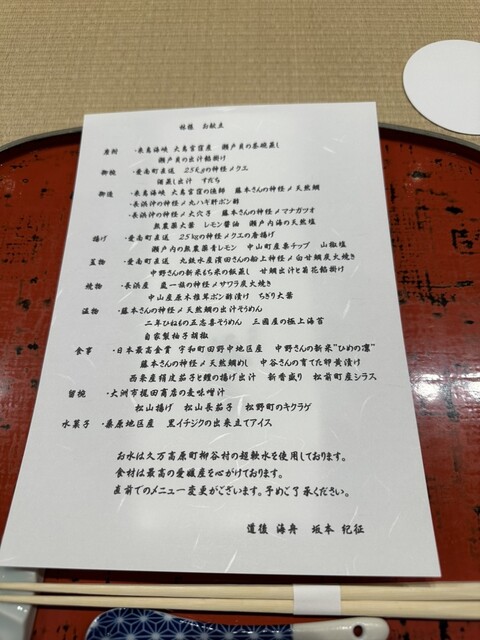 林檎 お献立
座附 ・来島海峡 大島宮窪産 瀬戸貝の茶碗蒸し
瀬戸貝の出汁餡掛け
御椀 ・愛南町直送 25kgの神経〆クエ
酒蒸し出汁 すだち
御造 ・来島海峡 大島宮窪の漁師 藤本さんの神経〆天然鯛
・長浜沖の神経〆丸ハギ肝ポン酢
・長浜沖の神経〆大穴子 藤本さんの神経〆マナガツオ
無農薬大葉 レモン醤油 瀬戸内海の天然塩
揚げ ・愛南町直送 25kgの神経〆クエの唐揚げ
瀬戸内の無農薬青レモン 中山町産栗チップ 山椒塩
蓋物 ・愛南町直送 丸鉄水産濱田さんの船上神経〆白甘鯛炭火焼き
中野さんの新米もち米の飯蒸し 甘鯛出汁と菊花餡掛け
焼物 ・長浜産 嵐一族の神経〆サワラ炭火焼き
中山産原木椎茸ポン酢漬け ちぎり大葉
温物 ・藤本さんの神経〆天然鯛の出汁そうめん
二年ひねもの五志喜そうめん 三國屋の極上海苔
自家製柚子胡椒
食事 ・日本最高金賞 宇和町田野中地区産 中野さんの新米“ひめの凛”
藤本さんの神経〆天然鯛めし 中谷さんの育てた卵黄漬け
西条産絹皮茄子と鰹の揚げ出汁 新香盛り 松前町産シラス
留椀 ・大洲市梶田商店の麦味噌汁
松山揚げ 松山長茄子 松野町のキクラゲ
水菓子 ・桑原地区産 黒イチジクの出来立てアイス
お水は久万高原町柳谷村の超軟水を使用しております。
食材は最高の愛媛産を心がけております。
直前でのメニュー変更がございます。予めご了承ください。
道後 海舟 坂本 紀征